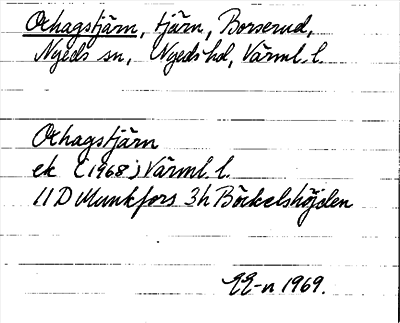 Oxhagstjärn, tjärn, Borserud,
Nyeds sn, Nyeds hd, Värml. l.
Oxhagstjärn
ek (1968) Värml. l.
11 D Munkfors 3h Böckelshöjden
1969.